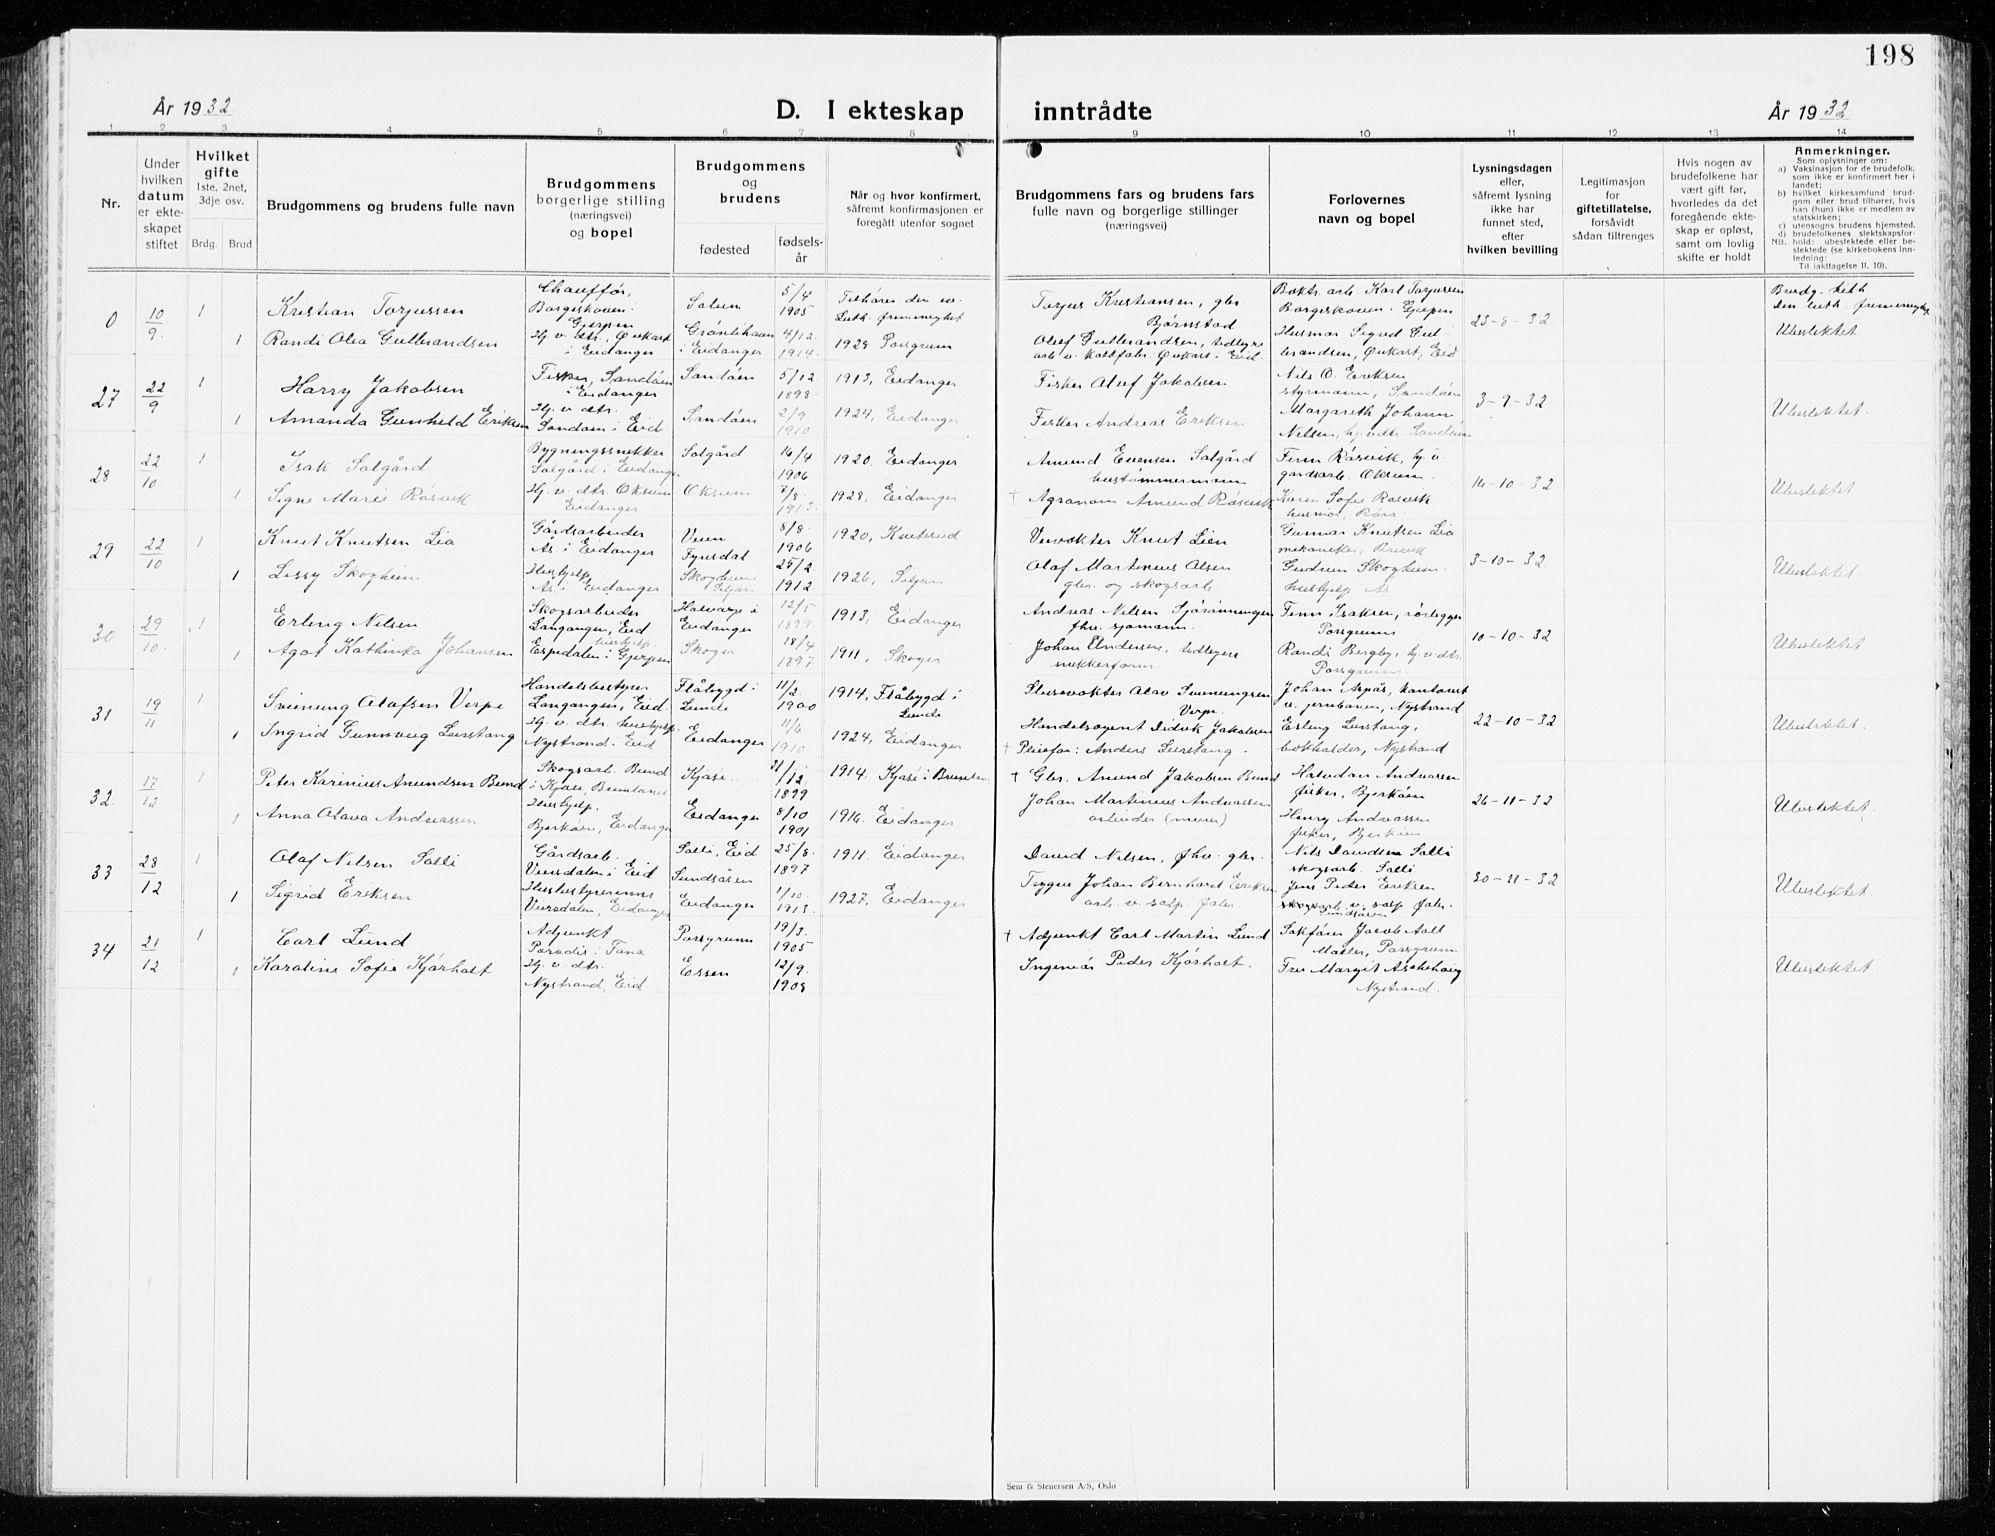 198
År 1932
D. I ekteskap inntrådte
År 1932
1 2 3 4 5 6 7 8 9 10 11 12 13 14
Nr.
Under hvilken datum er ekteskapet stiftet
Hvilket gifte
1ste, 2net, 3dje osv.
Brdg. Brud
Brudgommens og brudens fulle navn
Brudgommens borgerlige stilling (næringsvei) og bopel
Brudgommens og brudens
fødested
fødselsår
Når og hvor konfirmert, såfremt konfirmasjonen er foregått utenfor sognet
Brudgommens fars og brudens fars fulle navn og borgerlige stillinger (næringsvei)
Forlovernes navn og bopel
Lysningsdagen eller, såfremt lysning ikke har funnet sted, efter hvilken bevilling
Legitimasjon for giftetillatelse, forsåvidt sådan tiltrenges
Hvis nogen av brudefolkene har vært gift før, hvorledes da det foregående ekteskap er opløst, samt om lovlig skifte er holdt
Anmerkninger.
Som oplysninger om:
a) Vaksinasjon for de brudefolk, som ikke er konfirmert her i landet;
b) hvilket kirkesamfund brudgom eller brud tilhører, hvis han (hun) ikke er medlem av statskirken;
c) utensogns brudens hjemsted.
d) brudefolkenes slektskapsforhold: ubeslektede eller beslektede (se kirkebokens innledning:
NB.
Til iakttagelse II. 10).
0 10/9 1 Kristian Torjussen
Chauffør, Borgeskoven i Gjerpen
Solum 5/4 1905
Tilhører den ev. luth. frimenighet
Torjus Kristiansen, gbr. Bjørnstad
Karl Torjussen Borgeskoven i Gjerpen
23-8-32
Brudg. tilh. den luth. frimenighet
1 Randi Olea Gulbrandsen
Hj. v. dtr. i Eidanger
i Eidanger 4/12 1914
1928 Porsgrunn
Olaf Gulbrandsen, tidligere
Husmor Sigrid Gulbrandsen,
Ubeslektet
27 22/9 1 Harry Jakobsen
Fisker, Sandøen i Eidanger
Sandøen 5/12 1898
1913, Eidanger
Fisker Oluf Jakobsen
Nils O. Eriksen styrmann, Sandøen
3-9-32
1 Amanda Gunhild Eriksen
Hj. v. dtr. Sandøen i Eid
Sandøen 2/9 1910
1924, Eidanger
Fisker Andreas Eriksen
Margareth Johanne Nilsen, hj. v. dtr. Sandøen
Ubeslektet.
28 22/10 1 Isak Salgård
Bygningssnekker Salgård i Eidanger
Salgård 16/4 1906
1920, Eidanger
Amund Evensen Salgård hustømmermann
Finn Røsvik, hj. v. gårdsarb. Oksum
16-10-32
1 Signe Marie Røsvik
Hj. v. dtr. Oksum Eidanger
Oksum 7/8 1913
1928, Eidanger
† Agronom Amund Røsvik
Karen Sofie Røsvik husmor, Røra
Ubeslektet.
29 22/10 1 Knut Knutsen Lia
Gårdsarbeider Ås i Eidanger
Veum Fyresdal 8/8 1906
1920,
Veivokter Knut Lien
Gunnar Knutsen Lia mekaniker, Brevik
3-10-32
1 Lissy Skogheim
Hushjelp Ås i Eidanger
Skogheim Siljan 25/2 1912
1926, Siljan
Olaf Martinius Olsen gbr. og skogsarb.
Gudrun Skogheim hushjelp Ås
Ubeslektet
30 29/10 1 Erling Nilsen
Skogsarbeider Langangen, Eid
Halvarp i Eidanger 12/5 1899
1913, Eidanger
Andreas Nilsen fhv. sjømann
Finn Isaksen, rørlegger Porsgrunn
10-10-32
1 Agot Kathinka Johansen
hushjelp Espedalen i Gjerpen
Skoger 18/4 1897
1911, Skoger
Johan Andersen, tidligere snekkerform.
Randi Bergby, hj. v. dtr. Porsgrunn
Ubeslektet
31 19/11 1 Sveinung Olafsen Verpe
Handelsbestyrer Langangen, Eid
Flåbygd i Lunde 11/2 1900
1914, Flåbygd i Lunde
Slusevokter Olav Sveinungsen Verpe
Johan Aspås, kontorist v. jernbanen, Nystrand
22-10-32
1 Ingrid Gunnvieg Lerstang
Hj. v. dtr. hushjelp Nystrand i Eid
Eidanger 11/6 1910
1924, Eidanger
Handelsagent Didrik Jakobsen
† Pleiefar: Anders Lerstang.
Erling Lerstang, bokholder, Nystrand
Ubeslektet.
32 17/12 Peter Karinius Amundsen Bund
Skogsarb. Bund i Kjose, Brunlanes
Kjose 21/12 1899
1914. Kjose i Brunlanes
† Gbr. Amund Jakobsen Bund
Halvdan Andreassen fisker, Bjerkøen
26-11-32
1 Anna Olava Andreassen
Hushjelp. Bjerkøen, Eidanger
Eidanger 8/10 1901
1916. Eidanger
Johan Martinius Andreassen arbeider (murer)
Henry Andreassen fisker, Bjerkøen
Ubeslektet
33 28/12 1 Olaf Nilsen Salli
Gårdsarb. Versdalen i Eid
Salli, Eid 25/8 1897
1911. Eidanger
David Nilsen, fhv. gbr.
Nils Davidsen Salli skogsarb. Salli
30-11-32
1 Sigrid Eriksen
Husbestyrerinne Versdalen, Eidanger
Sundsåsen Eidanger 1/10 1913
1927, Eidanger
Trygve Johan Bernhard Eriksen arb. v. salp. fabr.
Jens Peder Eriksen v. salp. fabr. Sundsåsen
Ubeslektet
34 21/12 1 Carl Lund
Adjunkt Paradis i Fana
Porsgrunn 19/3 1905
† Adjunkt Carl Martin Lund
Sakfører Jacob Aall Møller, Porsgrunn
1 Karoline Sofie Kjørholt
Hj. v. dtr. Nystrand, Eid
Essen 12/9 1908
Ingeniør Peder Kjørholt.
Fru Margit Aschehoug Nystrand.
Ubeslektet
Sem & Stenersen A/S, Oslo